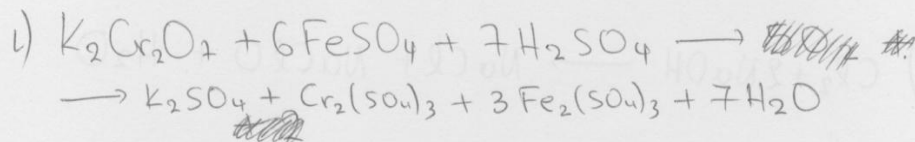 1) K₂Cr₂O₇ + 6FeSO₄ + 7H₂SO₄ ⟶
⟶ K₂SO₄ + Cr₂(SO₄)₃ + 3Fe₂(SO₄)₃ + 7H₂O